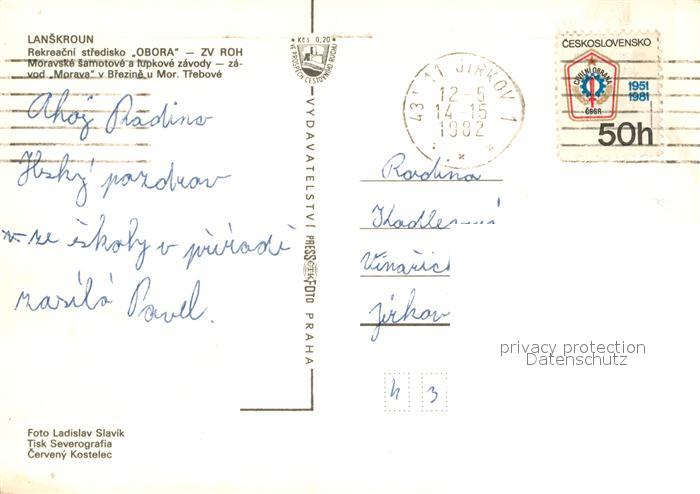 LANŠKROUN
Rekreační středisko „OBORA" — ZV ROH
Moravské šamotové a lupkové závody — zá-
vod „Morava" v Březině u Mor. Třebové
Ahoj Radino
Hezký pozdrav
ze školy v přírodě
zasílá Pavel.
Foto Ladislav Slavík
Tisk Severografia
Červený Kostelec
Kčs 0,20
VE PROSPĚCH CESTOVNÍHO RUCHU
VYDAVATELSTVÍ PRESSFOTO PRAHA
ČTK
431 11 JIRKOV 1
12-5
14-15
1982
ČESKOSLOVENSKO
CIVILNÍ OBRANA
ČSSR
1951
1981
50h
Radina
Vinařic
Jirkov
43
privacy protection
Datenschutz